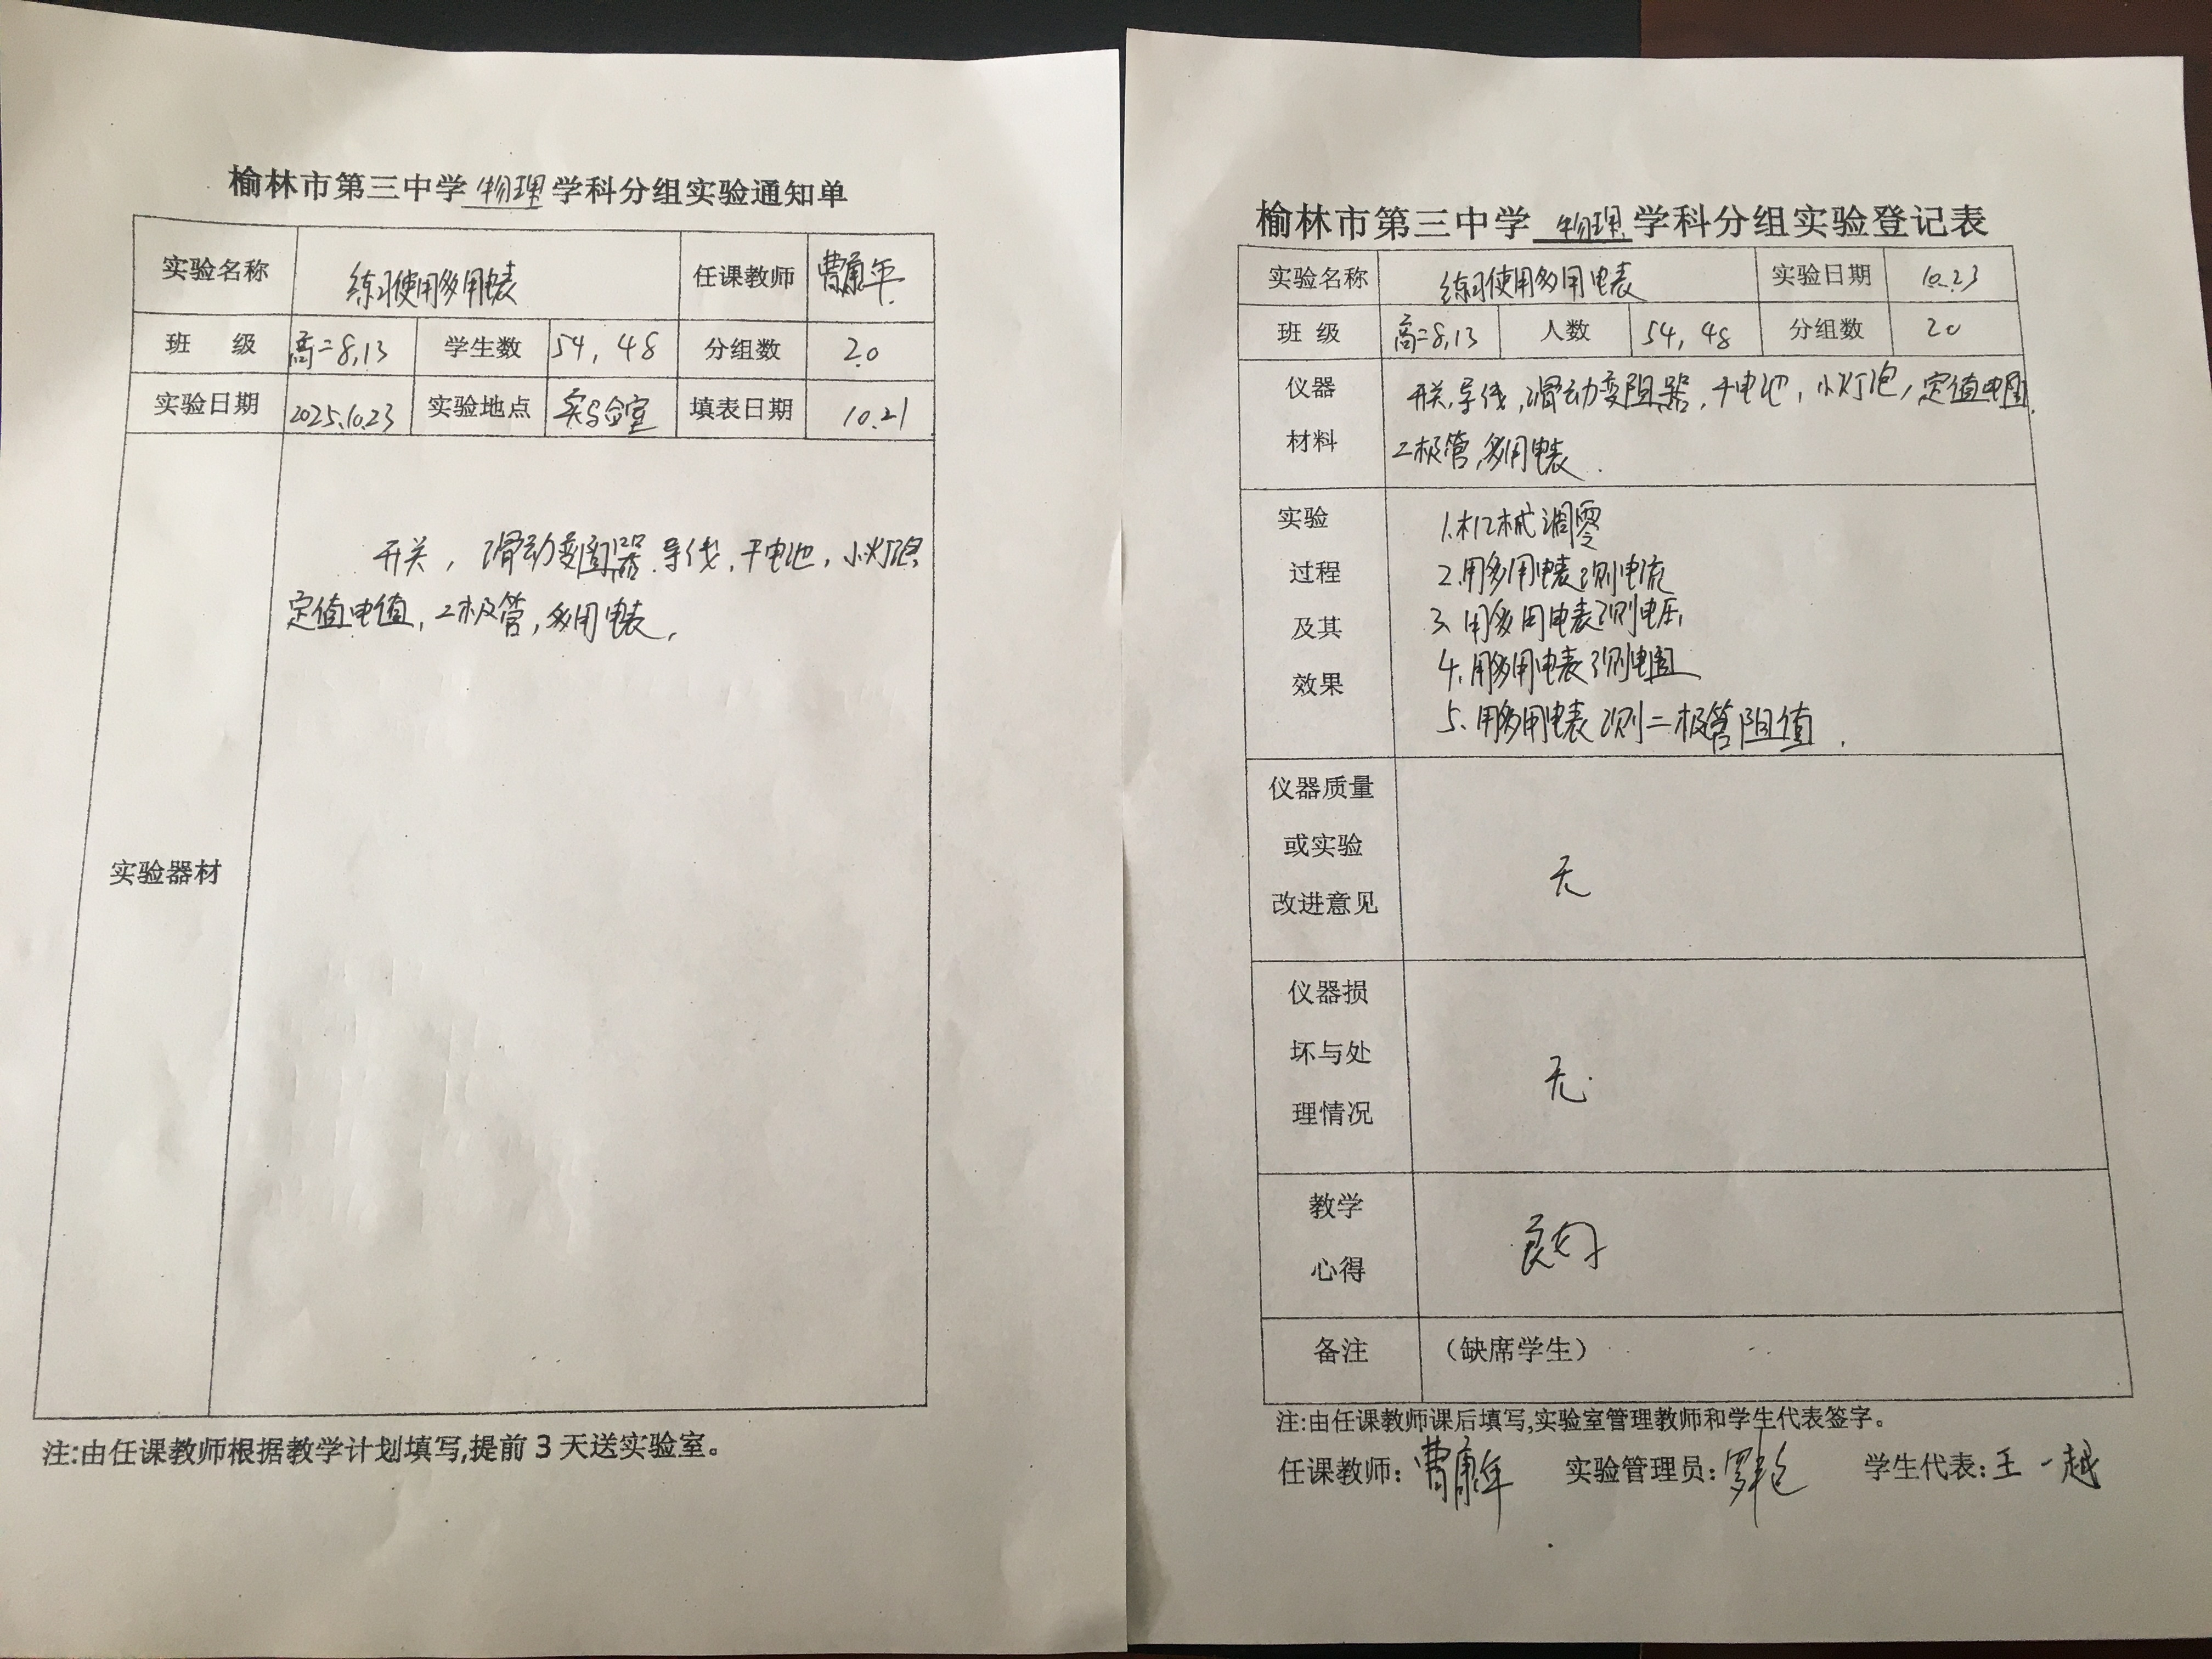 榆林市第三中学 物理 学科分组实验通知单
实验名称 练习使用多用电表 任课教师 曹康年
班 级 高二8,13 学生数 54, 48 分组数 20
实验日期 2025.10.23 实验地点 实验室 填表日期 10.21
实验器材
开关, 滑动变阻器.导线,干电池,小灯泡
定值电值,二极管,多用电表,
注:由任课教师根据教学计划填写,提前 3 天送实验室。
榆林市第三中学 物理 学科分组实验登记表
实验名称 练习使用多用电表 实验日期 10.23
班 级 高二8,13 人数 54, 48 分组数 20
仪器
材料
开关,导线,滑动变阻器,干电池,小灯泡,定值电阻,
二极管,多用电表.
实验
过程
及其
效果
1.机械调零
2.用多用电表测电流
3、用多用电表测电压
4、用多用电表测电阻
5、用多用电表测二极管阻值.
仪器质量
或实验
改进意见
无
仪器损
坏与处
理情况
无.
教学
心得
良好
备注 (缺席学生)
注:由任课教师课后填写,实验室管理教师和学生代表签字。
任课教师:曹康年 实验管理员: 学生代表:王一越